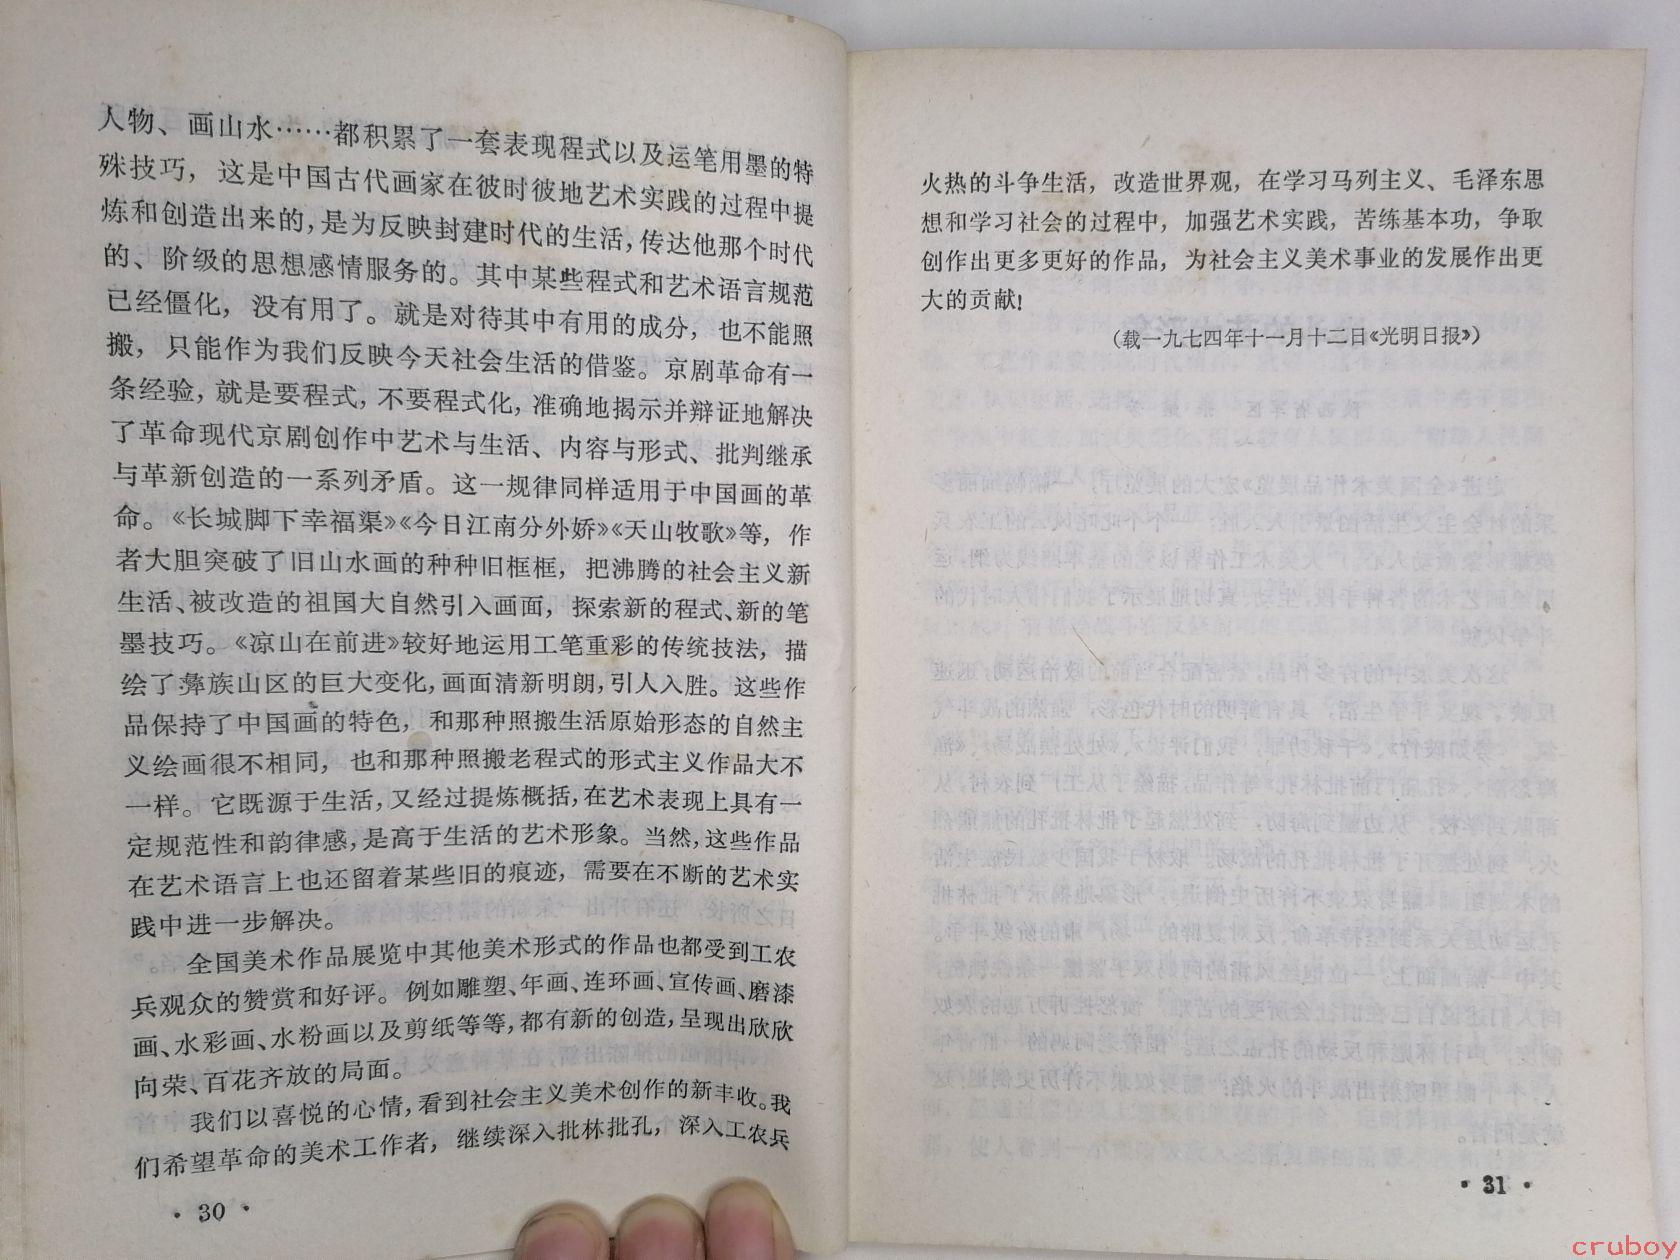 人物、画山水……都积累了一套表现程式以及运笔用墨的特
殊技巧，这是中国古代画家在彼时彼地艺术实践的过程中提
炼和创造出来的，是为反映封建时代的生活，传达他那个时代
的、阶级的思想感情服务的。其中某些程式和艺术语言规范
已经僵化，没有用了。就是对待其中有用的成分，也不能照
搬，只能作为我们反映今天社会生活的借鉴。京剧革命有一
条经验，就是要程式，不要程式化，准确地揭示并辩证地解决
了革命现代京剧创作中艺术与生活、内容与形式、批判继承
与革新创造的一系列矛盾。这一规律同样适用于中国画的革
命。《长城脚下幸福渠》《今日江南分外娇》《天山牧歌》等，作
者大胆突破了旧山水画的种种旧框框，把沸腾的社会主义新
生活、被改造的祖国大自然引入画面，探索新的程式、新的笔
墨技巧。《凉山在前进》较好地运用工笔重彩的传统技法，描
绘了彝族山区的巨大变化，画面清新明朗，引人入胜。这些作
品保持了中国画的特色，和那种照搬生活原始形态的自然主
义绘画很不相同，也和那种照搬老程式的形式主义作品大不
一样。它既源于生活，又经过提炼概括，在艺术表现上具有一
定规范性和韵律感，是高于生活的艺术形象。当然，这些作品
在艺术语言上也还留着某些旧的痕迹，需要在不断的艺术实
践中进一步解决。
全国美术作品展览中其他美术形式的作品也都受到工农
兵观众的赞赏和好评。例如雕塑、年画、连环画、宣传画、磨漆
画、水彩画、水粉画以及剪纸等等，都有新的创造，呈现出欣欣
向荣、百花齐放的局面。
我们以喜悦的心情，看到社会主义美术创作的新丰收。我
们希望革命的美术工作者，继续深入批林批孔，深入工农兵
· 30 ·
火热的斗争生活，改造世界观，在学习马列主义、毛泽东思
想和学习社会的过程中，加强艺术实践，苦练基本功，争取
创作出更多更好的作品，为社会主义美术事业的发展作出更
大的贡献！
（载一九七四年十一月十二日《光明日报》）
· 31 ·
cruboy